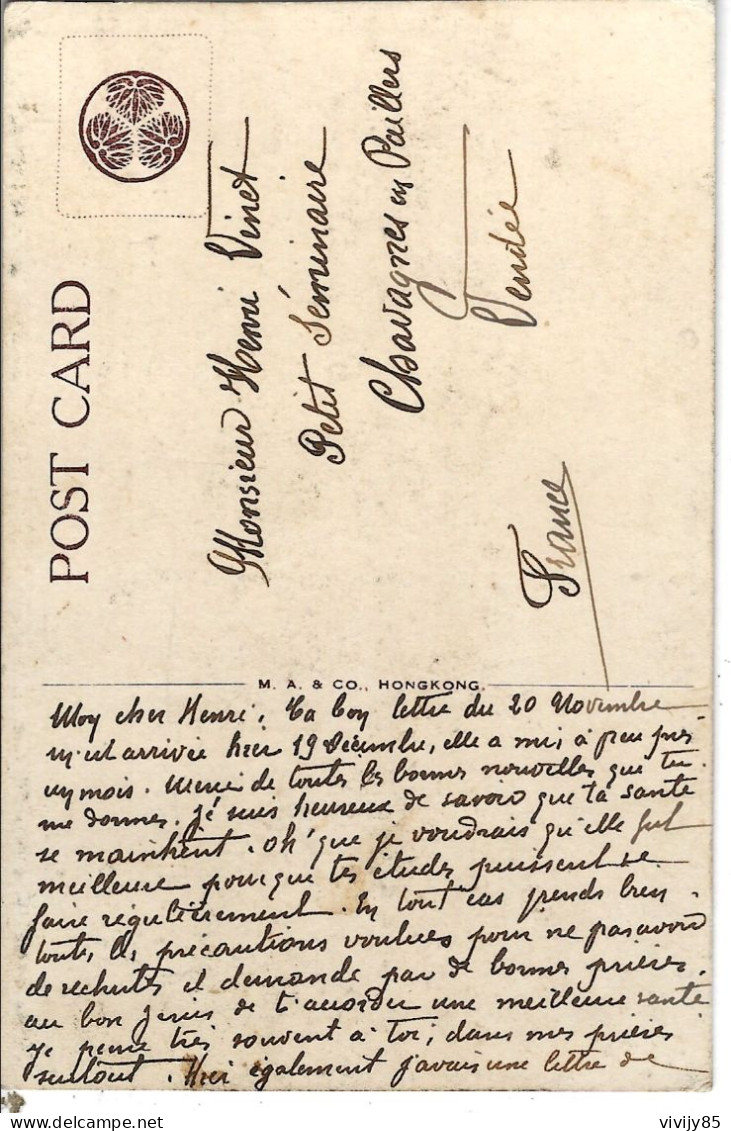 POST CARD
Monsieur Henri Vinet
Petit Séminaire
Chavagnes en Paillers
Vendée
France
M. A. & CO., HONGKONG.
Mon cher Henri, Ta bon lettre du 20 Novembre
m'est arrivée hier 19 Décembre, elle a mis à peu près
un mois. Merci de toutes les bonnes nouvelles que tu
me donnes. Je suis heureux de savoir que ta santé
se maintient. Oh! que je voudrais qu'elle fut
meilleure pour que tes études puissent se
faire régulièrement. En tout cas prends bien
toutes les précautions voulues pour ne pas avoir
de rechutes et demande par de bonnes prières
au bon Jésus de t'accorder une meilleure santé
Je pense très souvent à toi, dans mes prières
surtout. Hier également j'avais une lettre de
www.vivijy85